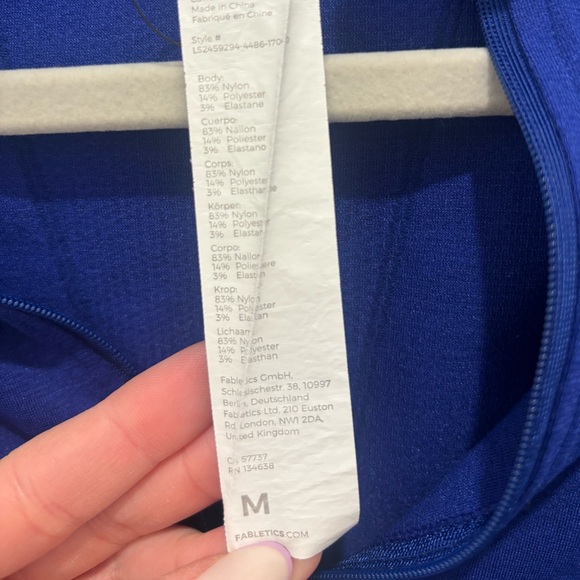 Made in China
Fabriqué en China
Style #
LS2459294-4486-170-
Body:
83% Nylon
14% Polyester
3% Elastane
Cuerpo:
83% Nailon
14% Poliester
3% Elastano
Corps:
83% Nylon
14% Polyester
3% Elasthanne
Körper:
83% Nylon
14% Polyester
3% Elastan
Corpo:
83% Nailon
14% Poliestere
3% Elastan
Krop:
83% Nylon
14% Polyester
3% Elastan
Lichaam:
83% Nylon
14% Polyester
3% Elasthan
Fabletics GmbH,
Schlesischestr. 38, 10997
Berlin, Deutschland
Fabletics Ltd. 210 Euston
Rd. London, NW1 2DA,
United Kingdom
57737
RN 134638
M
FABLETICS.COM